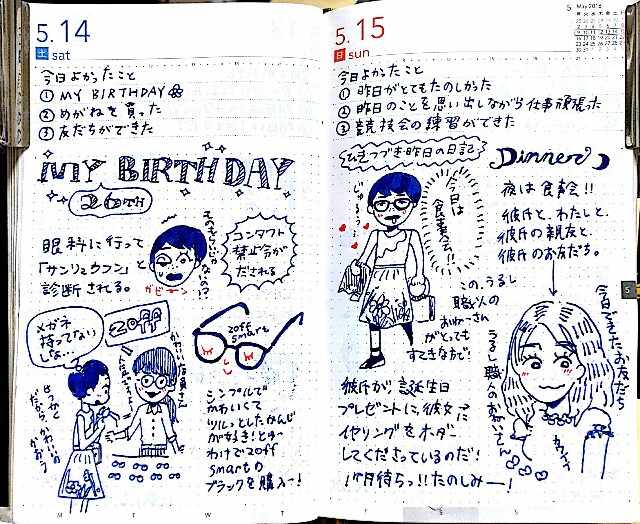 5.14
土 sat
今日よかったこと
① MY BIRTHDAY
② めがねを買った
③ 友だちができた
MY BIRTHDAY
26TH
眼科に行って
「サンリュウフン」と
診断される。
ガビーン
そのぐらいじゃないの?!
コンタクト
禁止令が
だされる
メガネ
持ってない
しな…
Zoff
せっかく
だから、かわいいの
かおう
かわいい店員さん
Zoff
smart
シンプルで
かわいくて
ツルッとしたかんじ
が好き!という
わけでZoff
smartの
ブラックを購入ー!
M
T
W
T
5.15
日 sun
5 May 2016
今日よかったこと
① 昨日がとてもたのしかった
② 昨日のことを思い出しながら仕事頑張った
③ 競技会の練習ができた
ひきつづき昨日の日記
Dinner
じゅるぅ…
今日は
食事会!!
夜は食事会!!
彼氏と、わたしと、
彼氏の親友と、
彼氏のお友だち。
この、うるし
職人の
おねーさん
がとっても
すてきな方で!
今日できたお友だち
うるし職人のおねいさん
彼氏が、誕生日
プレゼントに、彼女に
イヤリングをオーダー
してくださっているのだ!
1ヶ月待ちっ!!たのしみー!
5
F
S
S